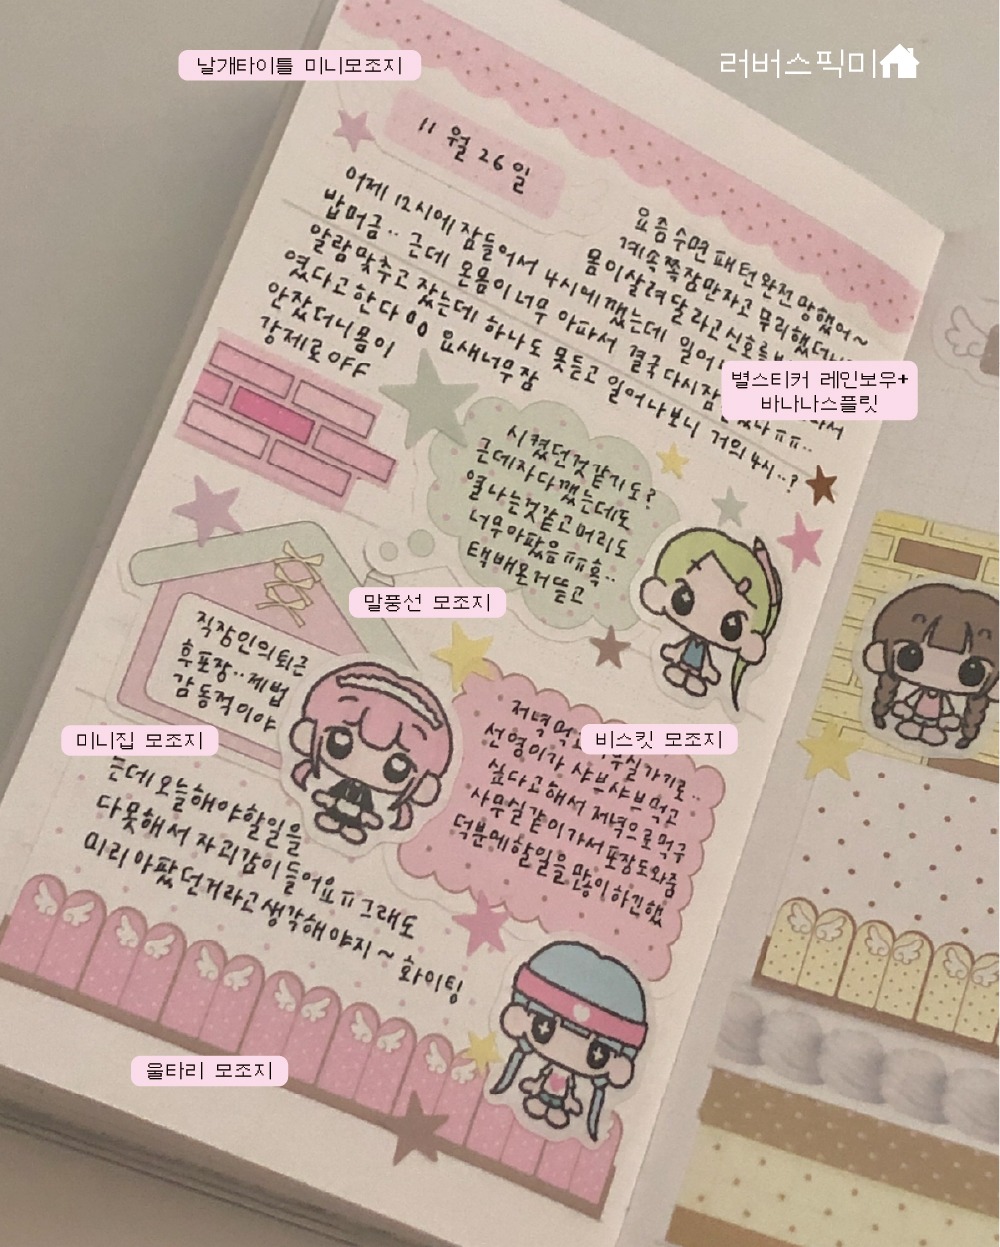 날개타이틀 미니모조지
러버스픽미
11월 26일
어제 12시에 잠들어서 4시에 깼는데 일어
밥먹금.. 근데 온몸이 너무 아파서 결국 다시잠
알람맞추고 잤는데 하나도 못듣고 일어나보니 거의 4시..?
였다고한다 00 요새너무잠
안잤더니몸이
강제로OFF
요즘수면패턴완전망했어~
계속쪽잠만자고 무리했더니
몸이살려달라고신호를
별스티커 레인보우+
바나나스플릿
시켰던것같기도?
근데자다깼는데도
열나는것같고머리도
너무아팠음ㅠㅠ흑..
택배온거뜯고
말풍선 모조지
직장인의퇴근
후포장..제법
감동적이야
미니집 모조지
비스킷 모조지
저녁먹고 실가기로..
선영이가 샤부샤부먹고
싶다고해서 저녁으로먹구
사무실같이가서포장도와줌
덕분에할일을많이하긴했
근데오늘해야할일을
다못해서 자괴감이들어요ㅠ그래도
미리아팠던거라고생각해야지~ 화이팅
울타리 모조지